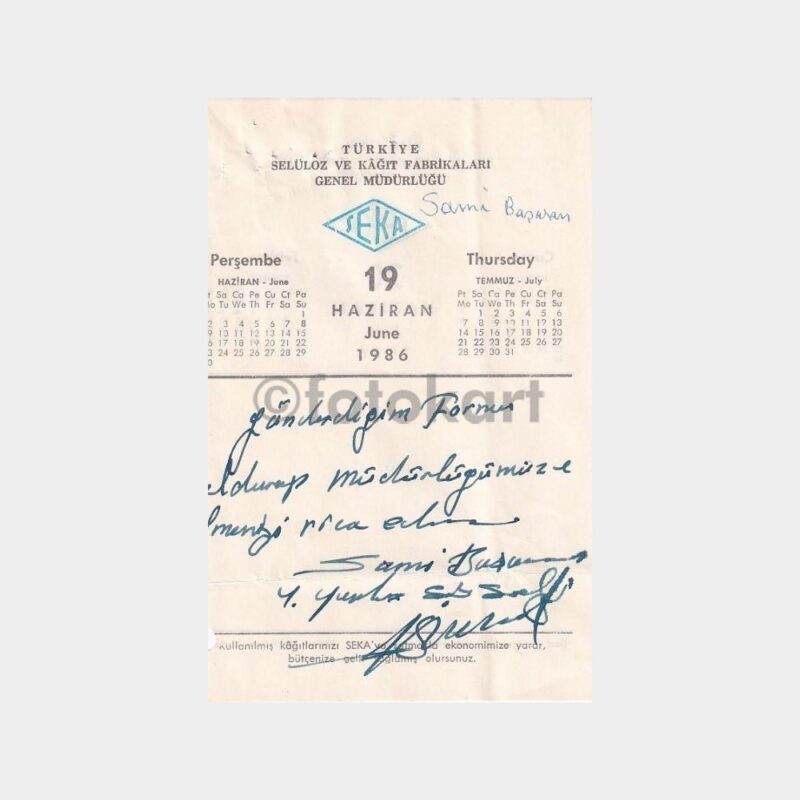 TÜRKİYE
SELÜLOZ VE KÂĞIT FABRİKALARI
GENEL MÜDÜRLÜĞÜ
Sami Başaran
SEKA
Perşembe Thursday
HAZİRAN - June 19 TEMMUZ - July
HAZİRAN
June
1986
t Sa Ça Pe Cu Ct Pa
Mo Tu We Th Fr Sa Su
1
2 3 4 5 6 7 8
9 10 11 12 13 14 15
16 17 18 19 20 21 22
23 24 25 26 27 28 29
Pt Sa Ça Pe Cu Ct Pa
Mo Tu We Th Fr Sa Su
1 2 3 4 5 6
7 8 9 10 11 12 13
14 15 16 17 18 19 20
21 22 23 24 25 26 27
28 29 30 31
©fotokart
Gönderdiğim Formu
eldurup müdürlüğümüze
lmenizi rica ederim
Sami Başaran
Kullanılmış kâğıtlarınızı SEKA'ya ekonomimize yarar,
bütçenize olursunuz.